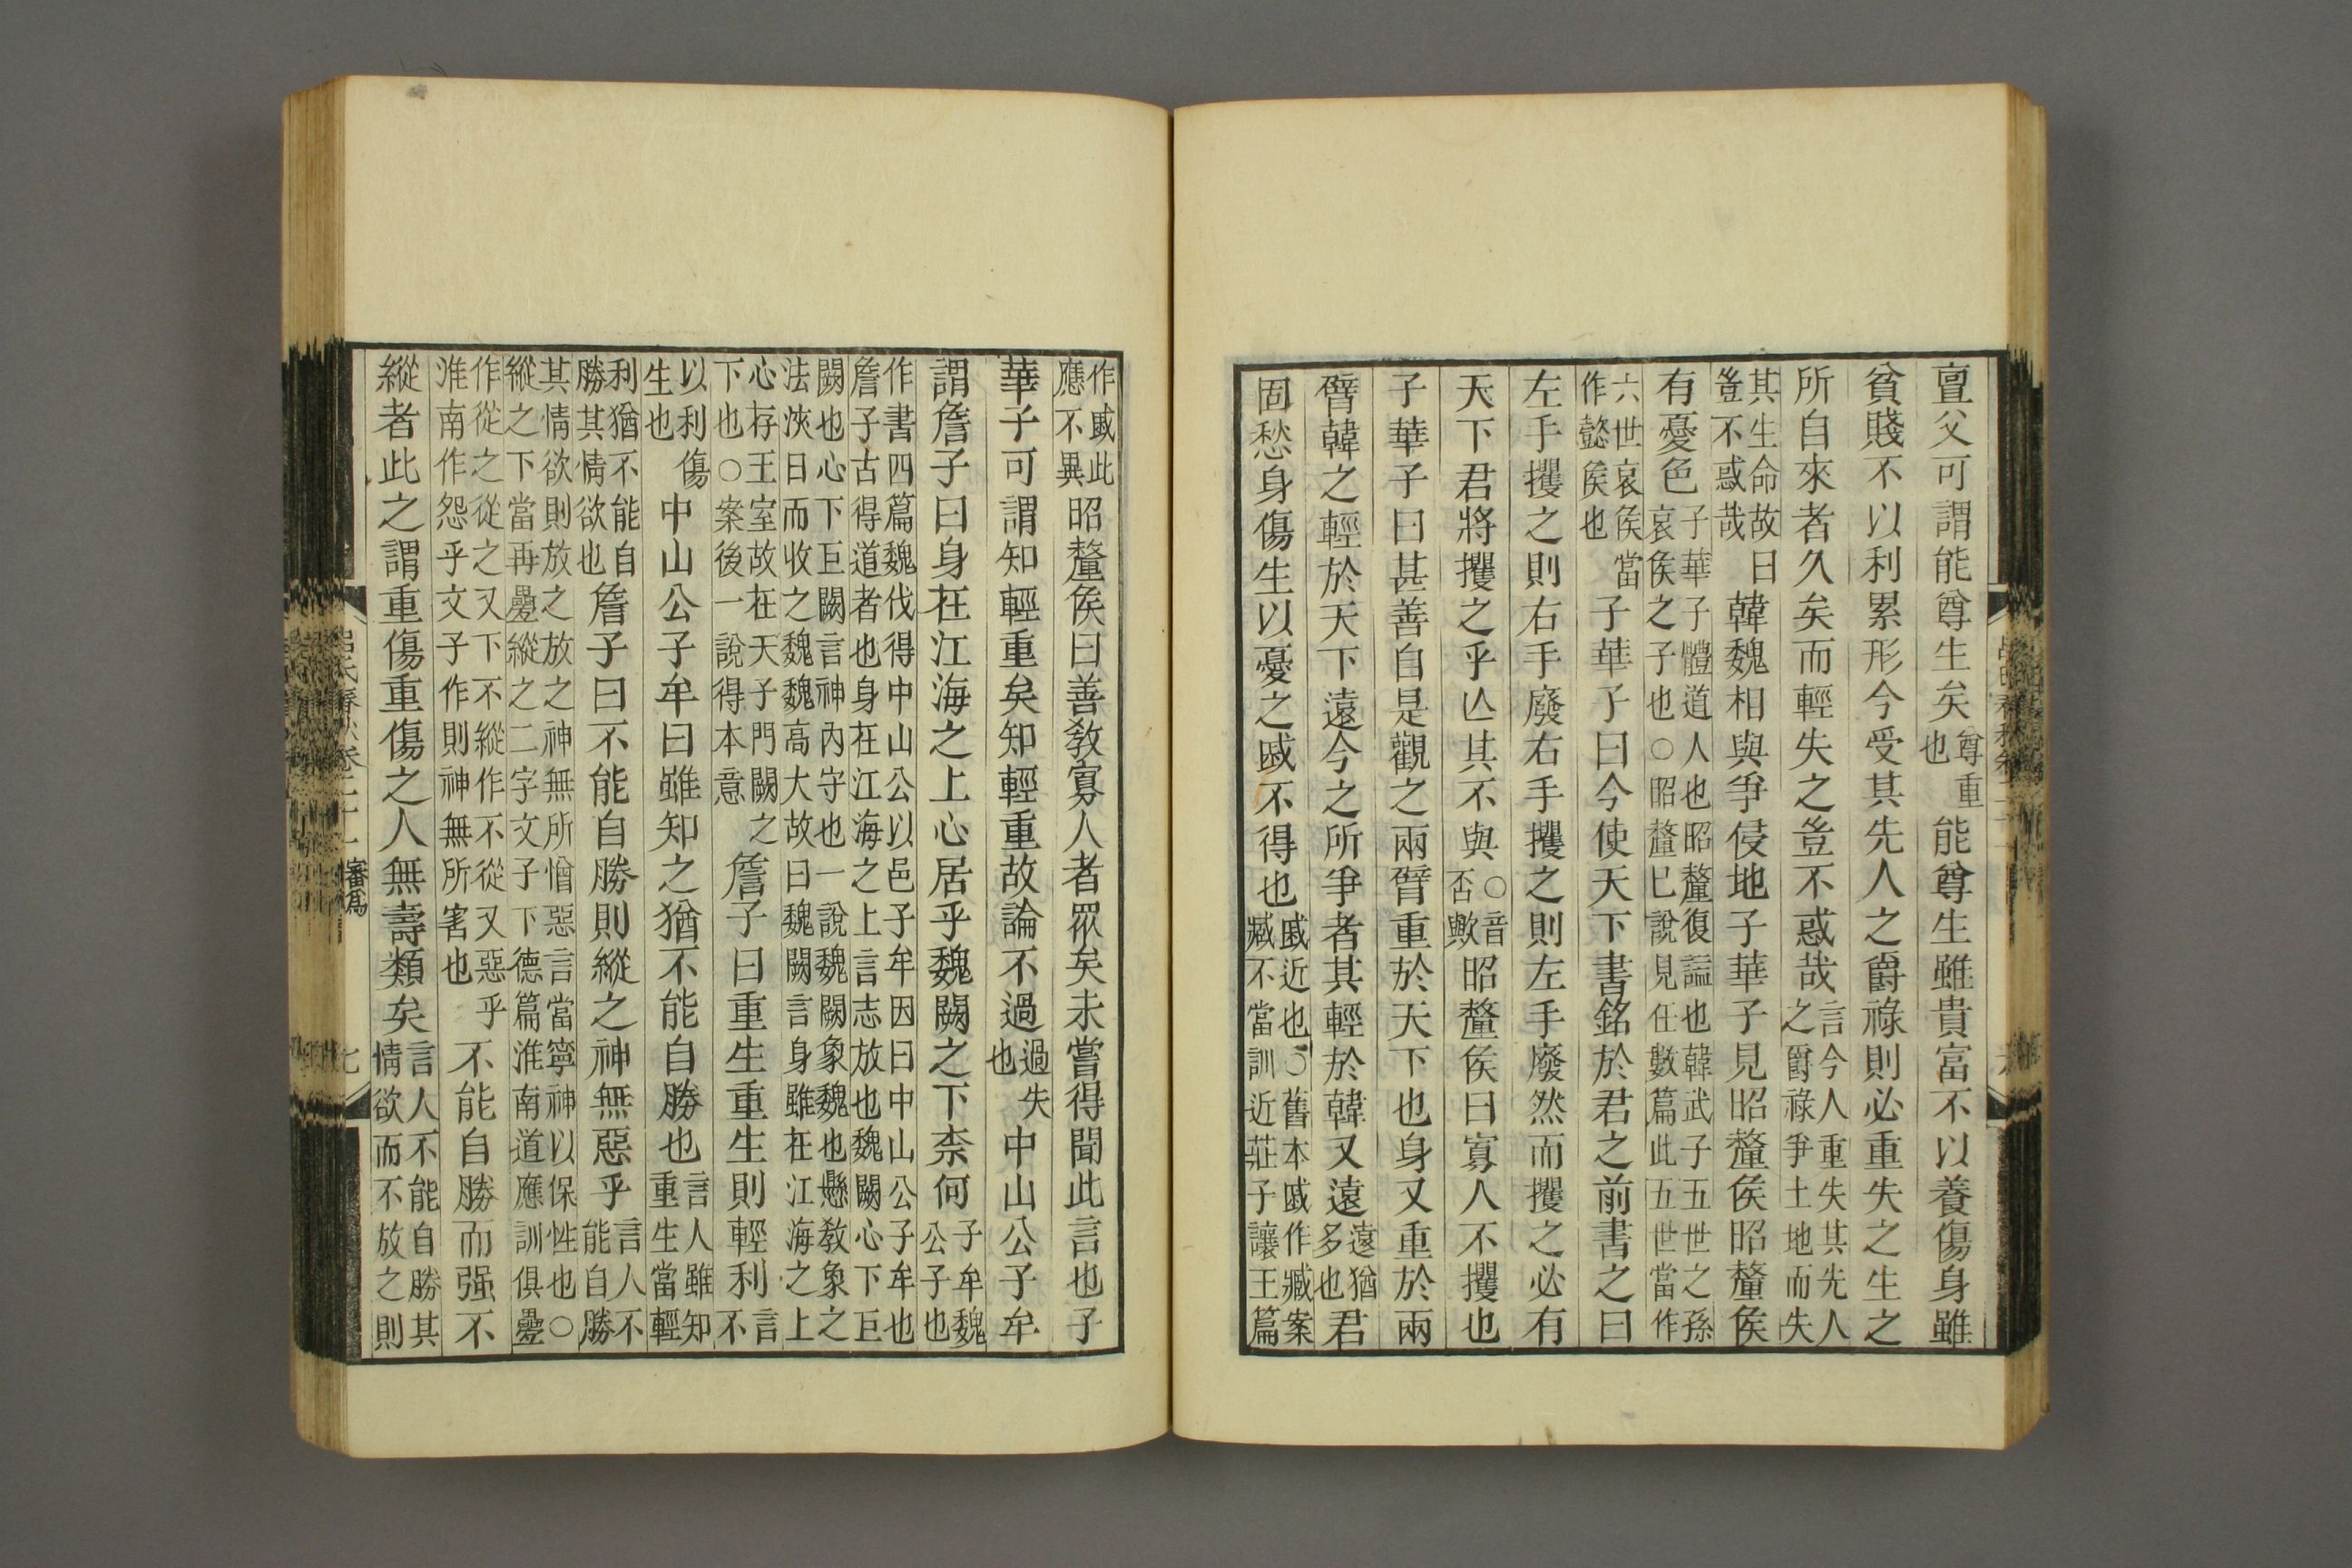 亶父可謂能尊生矣尊重也能尊生雖貴富不以養傷身雖
貧賤不以利累形今受其先人之爵祿則必重失之生之
所自來者久矣而輕失之豈不惑哉言今人重失其先人之爵祿爭土地而失
其生命故曰豈不惑哉韓魏相與爭侵地子華子見昭釐侯昭釐侯
有憂色子華子體道人也昭釐復諡也韓武子五世之孫哀侯之子也○昭釐已說見任數篇此五世當作
六世哀侯當作懿侯也子華子曰今使天下書銘於君之前書之曰
左手攫之則右手廢右手攫之則左手廢然而攫之必有
天下君將攫之乎亾其不與○音否歟昭釐侯曰寡人不攫也
子華子曰甚善自是觀之兩臂重於天下也身又重於兩
臂韓之輕於天下遠今之所爭者其輕於韓又遠遠猶多也君
固愁身傷生以憂之戚不得也戚近也○舊本戚作臧案臧不當訓近莊子讓王篇
作戚此應不異昭釐侯曰善教寡人者眾矣未嘗得聞此言也子
華子可謂知輕重矣知輕重故論不過過失也中山公子牟
謂詹子曰身在江海之上心居乎魏闕之下柰何子牟魏公子也
作書四篇魏伐得中山公以邑子牟因曰中山公子牟也詹子古得道者也身在江海之上言志放也魏闕心下巨
闕也心下巨闕言神內守也一說魏闕象魏也懸教象之法浹日而收之魏魏高大故曰魏闕言身雖在江海之上
心存王室故在天子門闕之下也○案後一說得本意詹子曰重生重生則輕利言不
以利傷生也中山公子牟曰雖知之猶不能自勝也言人雖知重生當輕
利猶不能自勝其情欲也詹子曰不能自勝則縱之神無惡乎言人不能自勝
其情欲則放之放之神無所憎惡言當寧神以保性也○縱之下當再疊縱之二字文子下德篇淮南道應訓俱疊
作從之從之又下不縱作不從又惡乎淮南作怨乎文子作則神無所害也不能自勝而强不
縱者此之謂重傷重傷之人無壽類矣言人不能自勝其情欲而不放之則
呂氏春秋卷二十一 審爲 七